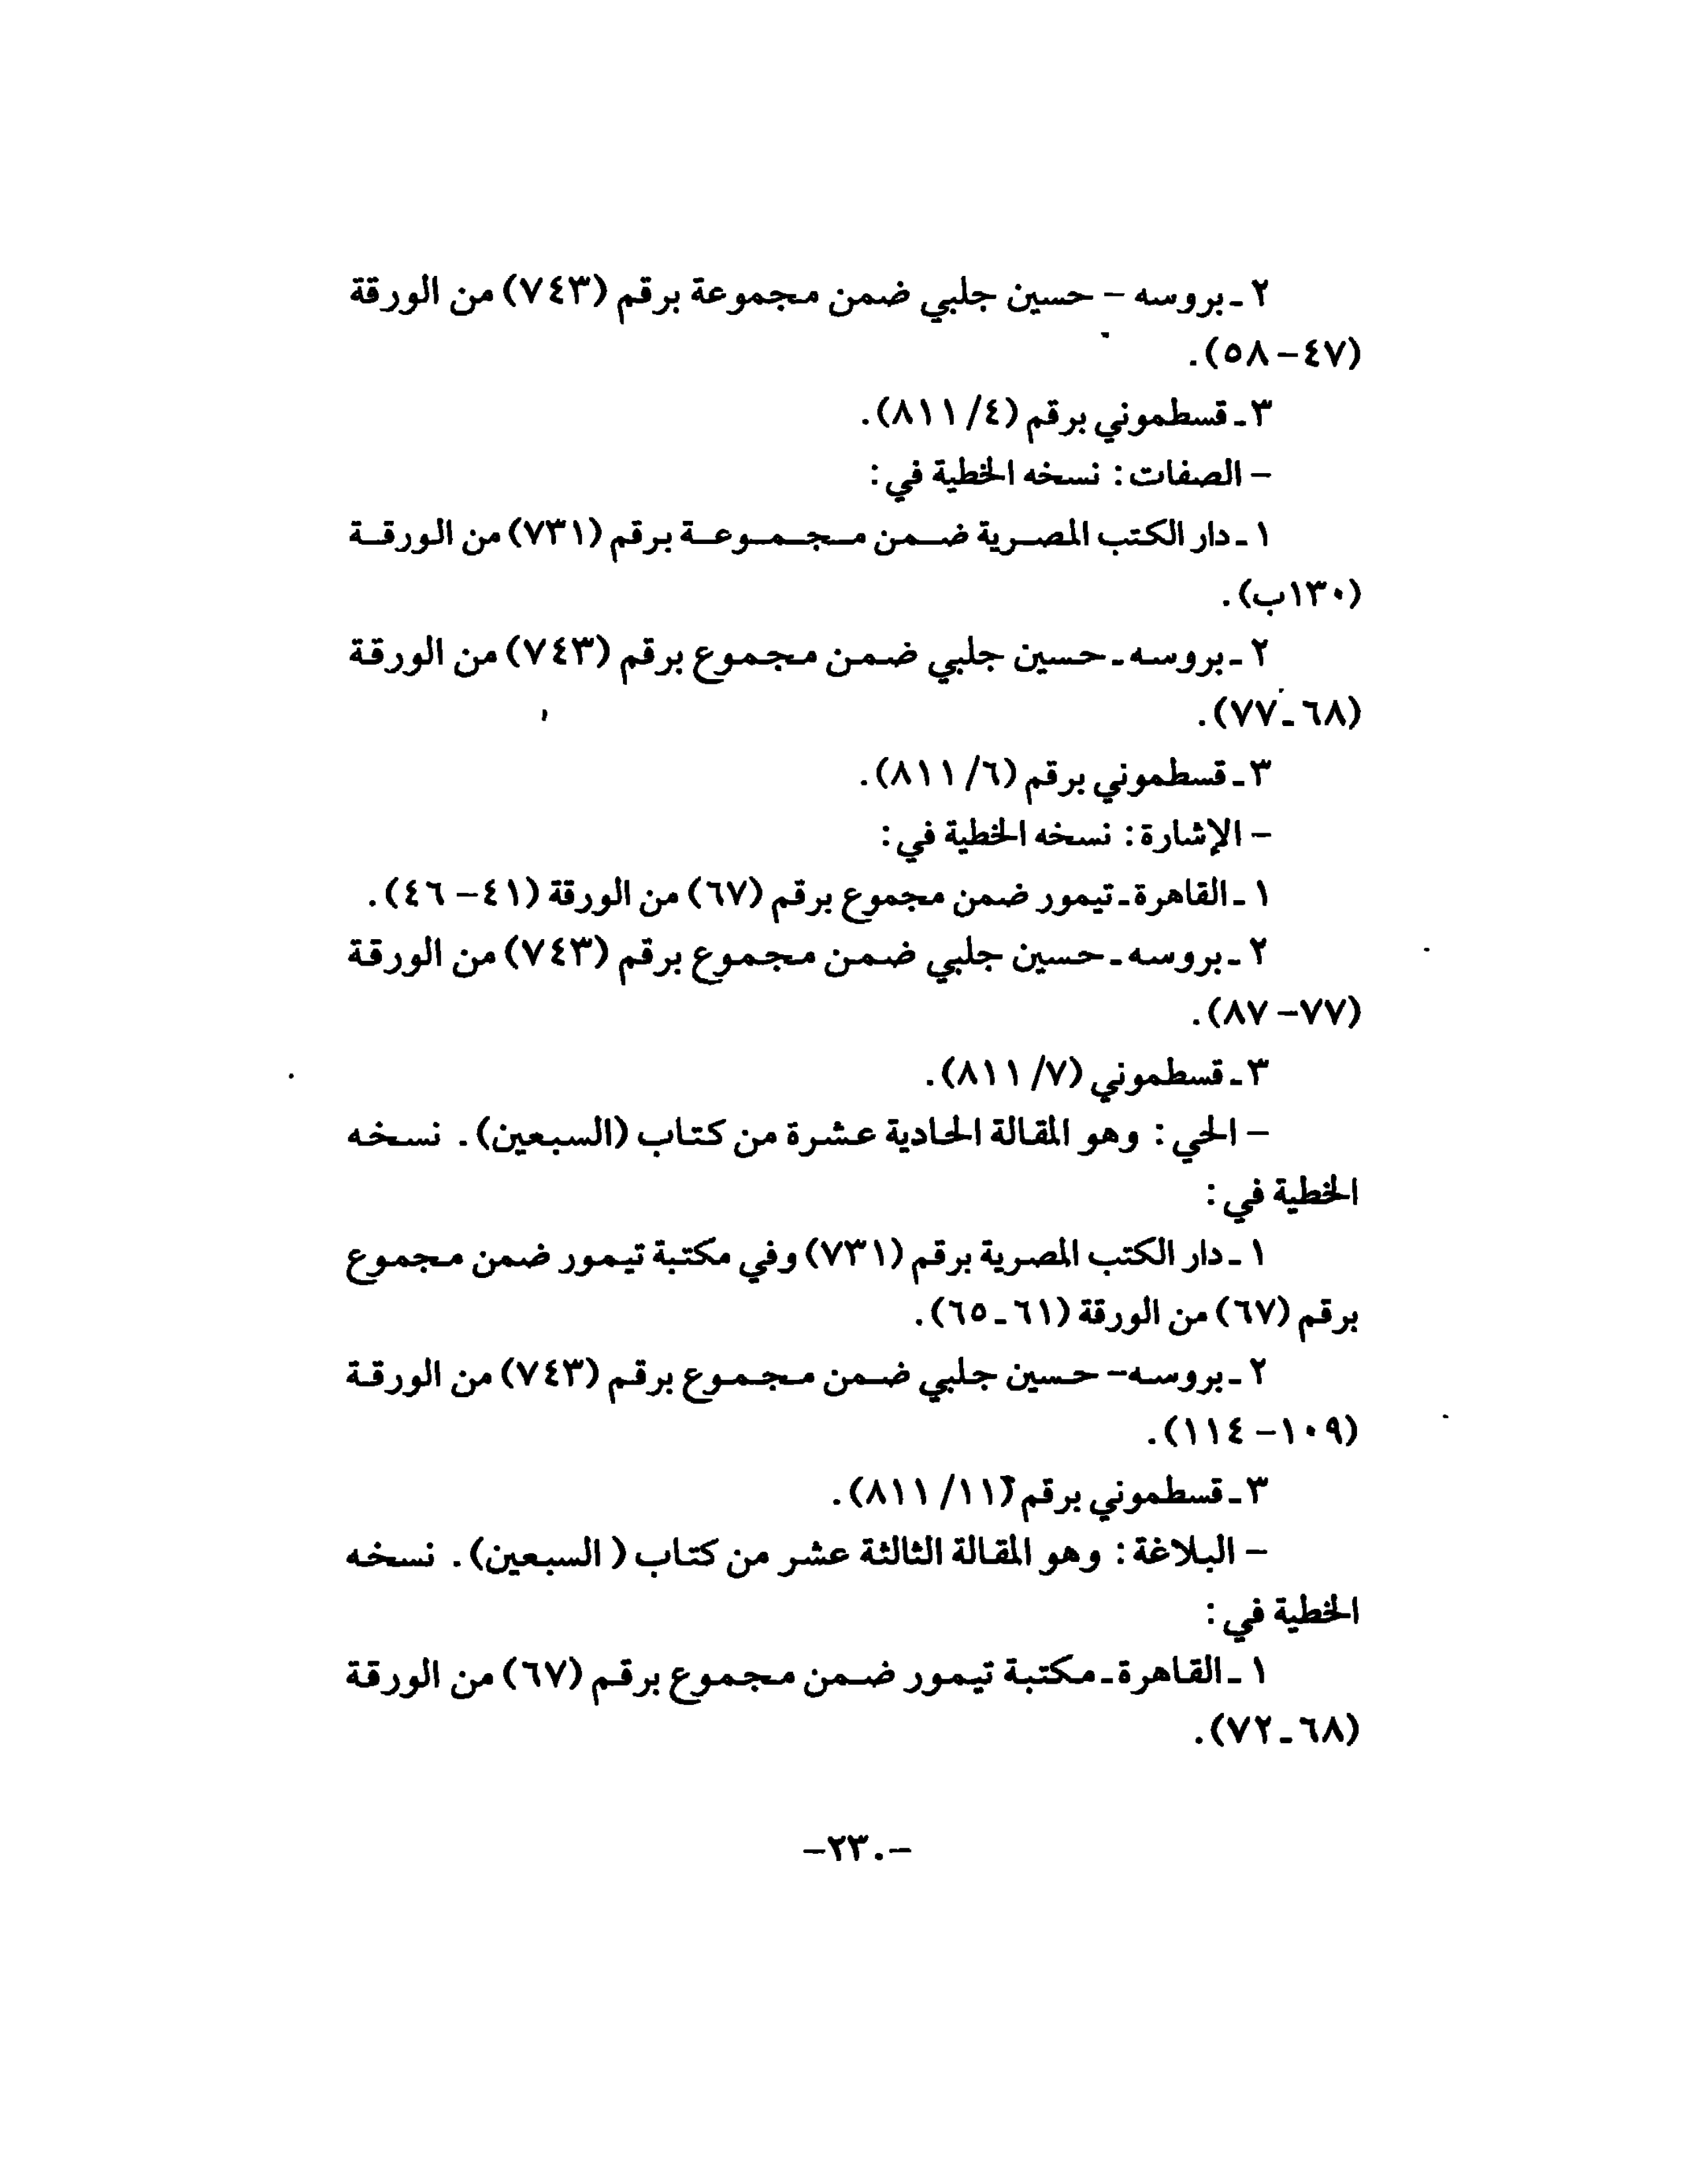 ٢ ـ بروسه – حسين جلبي ضمن مجموعة برقم (٧٤٣) من الورقة
(٤٧–٥٨).
٣ ـ قسطموني برقم (٤/ ٨١١).
– الصفات : نسخه الخطية في :
١ ـ دار الكتب المصرية ضمن مجموعة برقم (٧٣١) من الورقة
(١٣٠ب).
٢ ـ بروسه ـ حسين جلبي ضمن مجموع برقم (٧٤٣) من الورقة
(٦٨ـ ٧٧).
٣ ـ قسطموني برقم (٦/ ٨١١).
– الإشارة : نسخه الخطية في :
١ ـ القاهرة ـ تيمور ضمن مجموع برقم (٦٧) من الورقة (٤١– ٤٦).
٢ ـ بروسه ـ حسين جلبي ضمن مجموع برقم (٧٤٣) من الورقة
(٧٧– ٨٧).
٣ ـ قسطموني (٧/ ٨١١).
– الحي : وهو المقالة الحادية عشرة من كتاب (السبعين). نسخه
الخطية في :
١ ـ دار الكتب المصرية برقم (٧٣١) وفي مكتبة تيمور ضمن مجموع
برقم (٦٧) من الورقة (٦١ـ ٦٥).
٢ ـ بروسه– حسين جلبي ضمن مجموع برقم (٧٤٣) من الورقة
(١٠٩– ١١٤).
٣ ـ قسطموني برقم (١١/ ٨١١).
– البلاغة : وهو المقالة الثالثة عشر من كتاب ( السبعين). نسخه
الخطية في :
١ ـ القاهرة ـ مكتبة تيمور ضمن مجموع برقم (٦٧) من الورقة
(٦٨ـ ٧٢).
–٢٣٠–